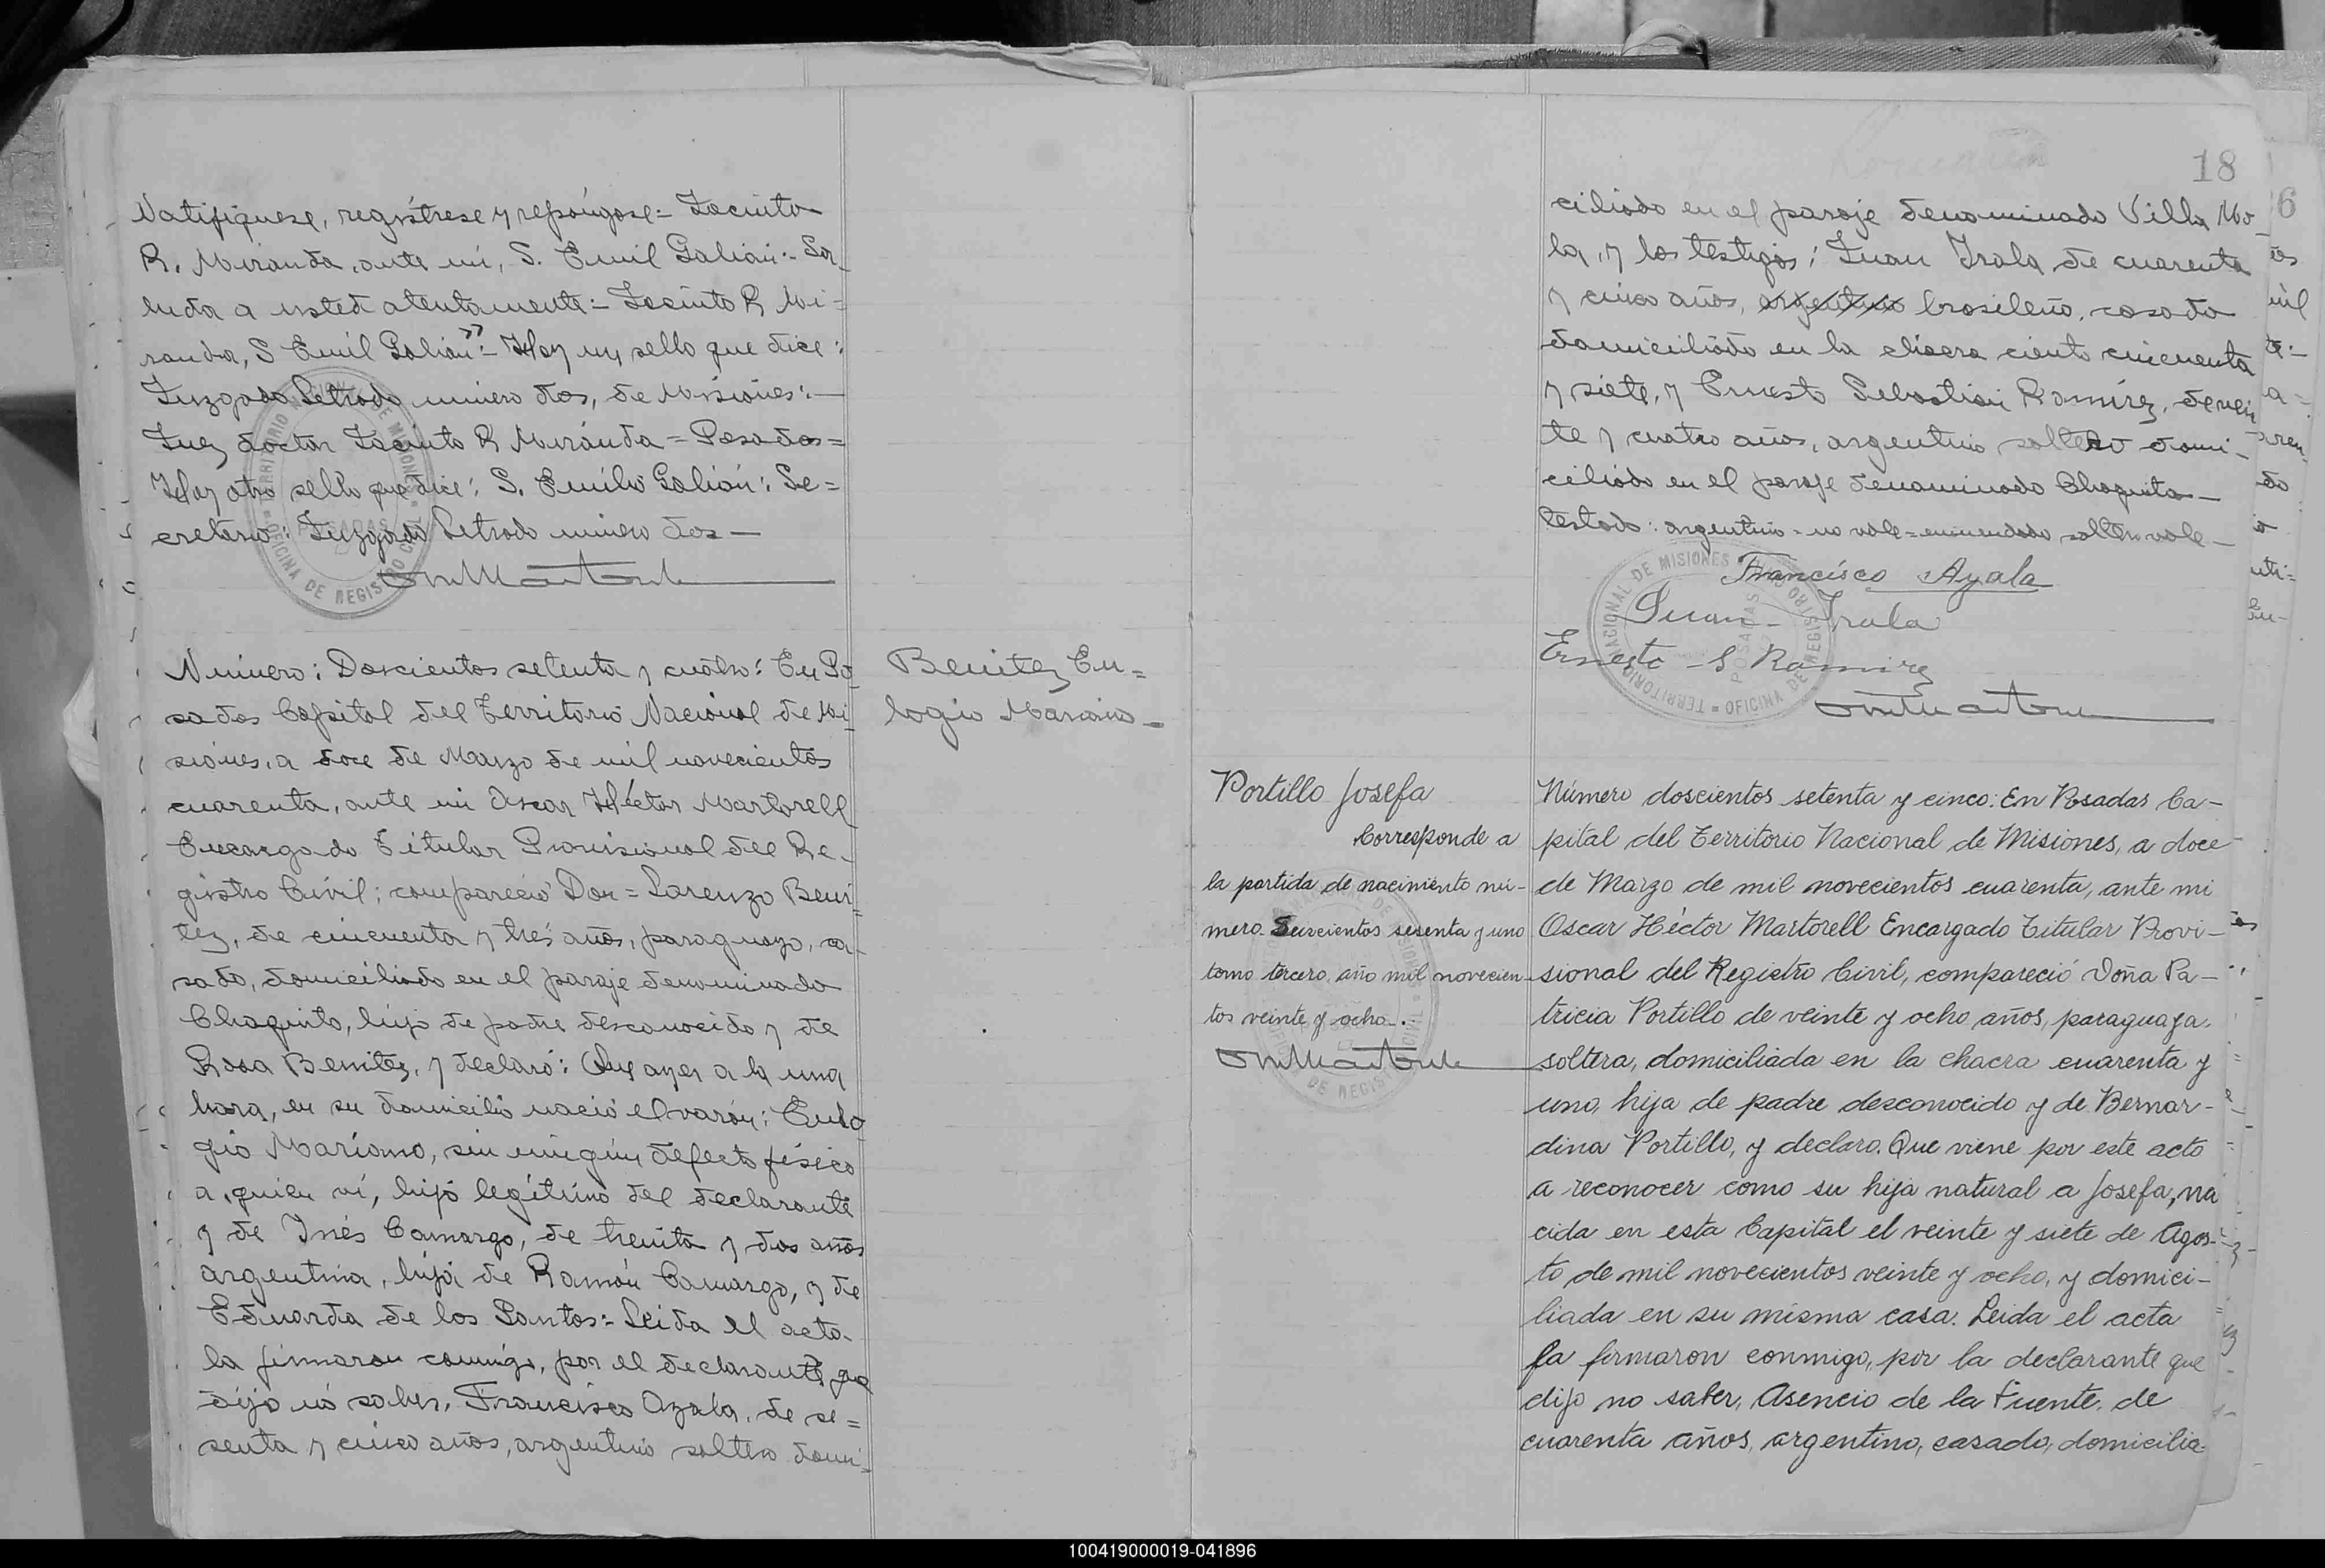 Notifíquese, regístrese y repóngase = Jacinto
R. Miranda, ante mí, S. Emil Galián :- Sa-
luda a usted atentamente = Jacinto R Mi=
randa, S Emil Galián" = Hay un sello que dice:
Juzgado Letrado número dos, de Misiones: —
Juez doctor Jacinto R Miranda = Posadas =
Hay otro sello que dice: S. Emilio Galián: Se=
cretario: Juzgado Letrado número dos —
Número: Doscientos setenta y cuatro: En Po
sadas Capital del Territorio Nacional de Mi
siones, a doce de Marzo de mil novecientos
cuarenta, ante mi Oscar Héctor Martorell
Encargado Titular Provisional del Re-
gistro Civil; compareció Don = Lorenzo Bení-
tez, de cincuenta y tres años, paraguayo, ca-
sado, domiciliado en el paraje denominado
Chaquito, hijo de padre desconocido y de
Rosa Benitez, y declaró: Que ayer a la una
hora, en su domicilio nació el varón: Eulo
gio Mariano, sin ningún defecto físico
a quien ví, hijo legítimo del declarante
y de Inés Camargo, de treinta y dos años
argentina, hija de Ramón Camargo, y de
Eduarda de los Santos = Leída el acta
la firmaron conmigo, por el declarante que
dijo no saber, Francisco Ayala, de se=
senta y cinco años, argentino soltero domi-
Benitez Eu=
logio Mariano -
18
ciliado en el paraje denominado Villa Mo-
la, y los testigos: Juan Irala de cuarenta
y cinco años, argentino brasileño, casado
domiciliado en la chacra ciento cincuenta
y siete, y Ernesto Sebastián Ramírez, de vein
te y cuatro años, argentino soltero domi-
ciliado en el paraje denominado Chaquito —
Testado: argentino - no vale = enmendado soltero vale —
Francisco Ayala
Juan Irala
Ernesto S Ramirez
Portillo Josefa
Corresponde a
la partida de nacimiento nú-
mero Seiscientos sesenta y uno
tomo tercero, año mil novecien-
tos veinte y ocho.-
Número doscientos setenta y cinco: En Posadas Ca-
pital del Territorio Nacional de Misiones, a doce
de Marzo de mil novecientos cuarenta, ante mi
Oscar Héctor Martorell Encargado Titular Provi-
sional del Registro Civil, compareció Doña Pa-
tricia Portillo de veinte y ocho años, paraguaya,
soltera, domiciliada en la chacra cuarenta y
uno, hija de padre desconocido y de Bernar-
dina Portillo, y declaro. Que viene por este acto
a reconocer como su hija natural a Josefa, na
cida en esta Capital el veinte y siete de Agos-
to de mil novecientos veinte y ocho, y domici-
liada en su misma casa. Leida el acta
la firmaron conmigo, por la declarante que
dijo no saber, Asencio de la Fuente, de
cuarenta años, argentino, casado, domicilia-
100419000019-041896